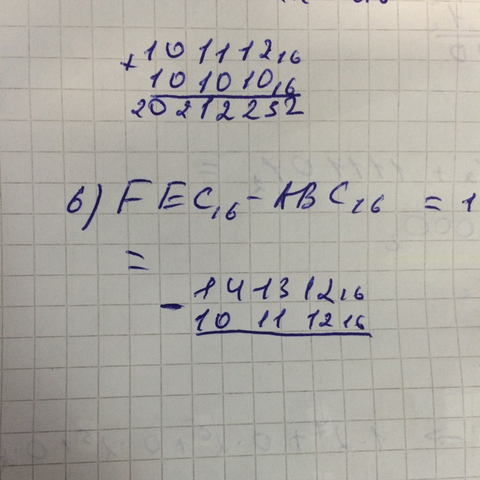 + 10 11 12₁₆
10 10 10₁₆
20 21 22 32
б) FEC₁₆ - ABC₁₆ = 1
=
- 14 13 12₁₆
10 11 12₁₆